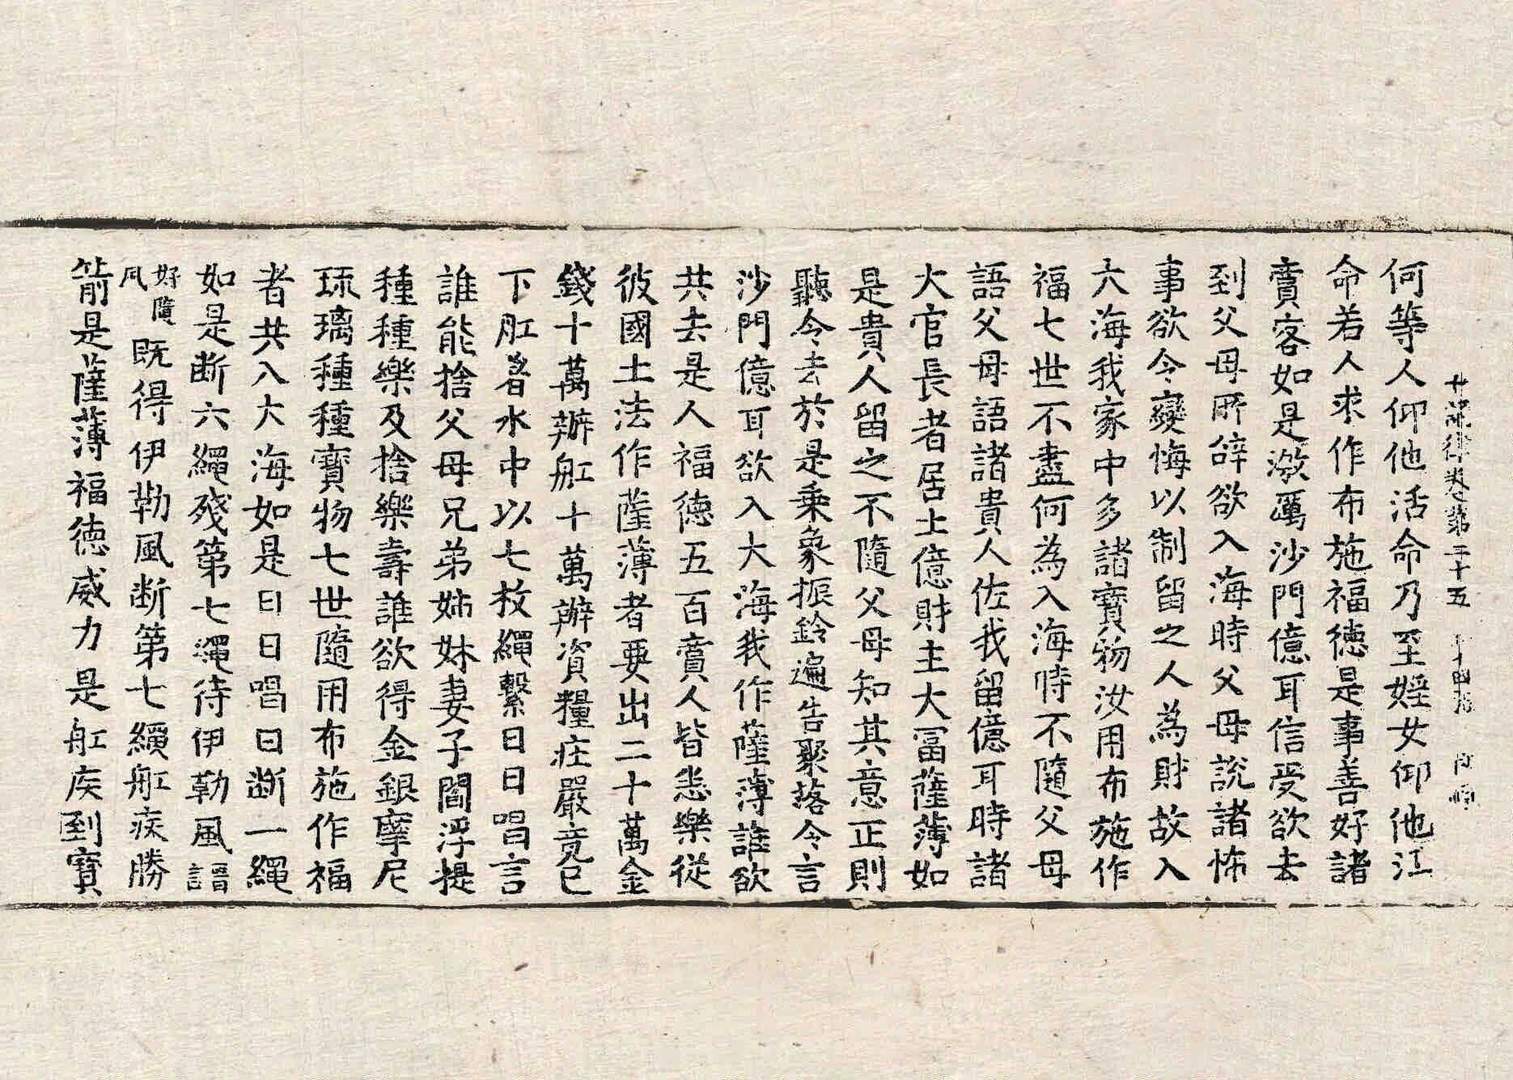 十誦律卷第二十五
何等人仰他活命乃至婬女仰他活
命若人求作布施福德是事善好諸
賈客如是激厲沙門億耳信受欲去
到父母所辞欲入海時父母說諸怖
事欲令變悔以制留之人為財故入
大海我家中多諸寶物汝用布施作
福七世不盡何為入海時不隨父母
語父母語諸貴人佐我留億耳時諸
大官長者居士億財主大冨薩薄如
是貴人留之不隨父母知其意正則
聽令去於是乗象振鈴遍告聚落令言
沙門億耳欲入大海我作薩薄誰欲
共去是人福德五百賈人皆悉樂從
彼國土法作薩薄者要出二十萬金
錢十萬辦舡十萬辦資糧庄嚴竟已
下舡著水中以七枚繩繫日日唱言
誰能捨父母兄弟姊妹妻子閻浮提
種種樂及捨樂壽誰欲得金銀摩尼
琉璃種種寶物七世隨用布施作福
者共入大海如是日日唱日断一繩
如是断六繩殘第七繩待伊勒風語
好隨風既得伊勒風断第七繩舡疾勝
箭是薩薄福德威力是舡疾到寶